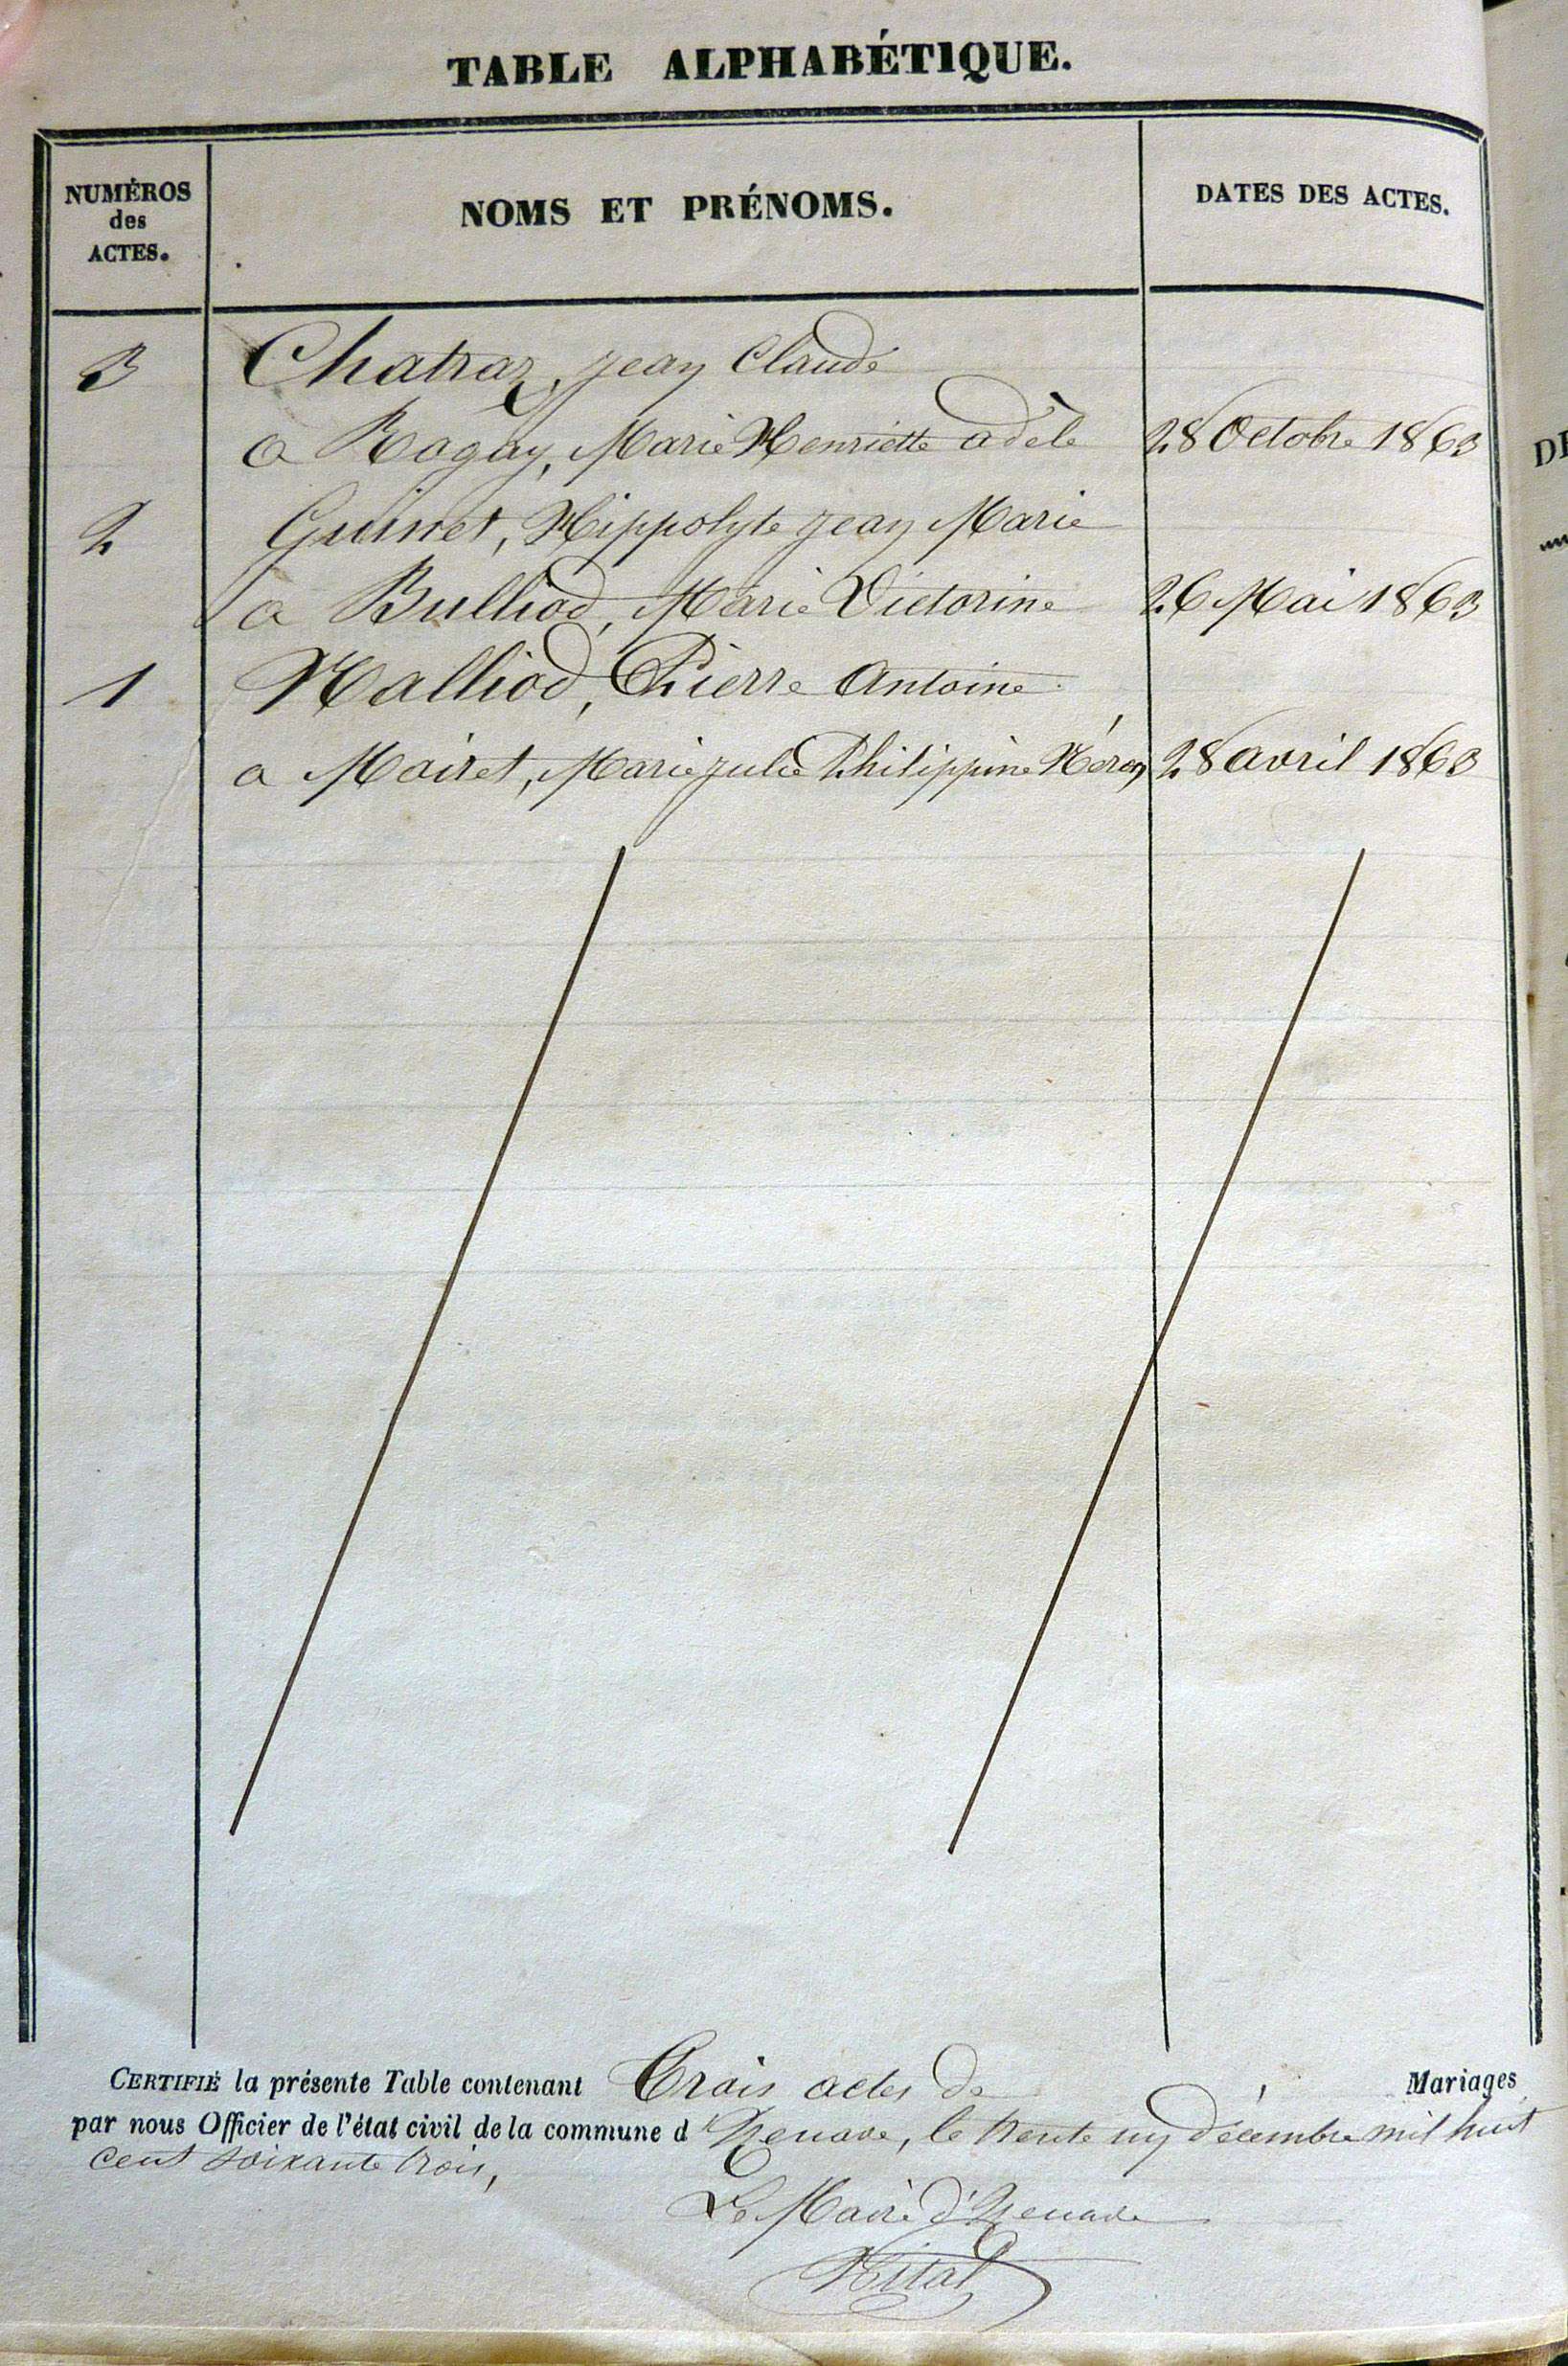 TABLE ALPHABÉTIQUE.
NUMÉROS
des
ACTES.
NOMS ET PRÉNOMS.
DATES DES ACTES.
3 Chatraz, Jean Claude
a Ragay, Marie Henriette adèle 28 Octobre 1863
2 Guinet, Hippolyte Jean Marie
a Bulliod, Marie Victorine 26 Mai 1863
1 Nalliod, Pierre Antoine
a Mairet, Marie Julie Philippine 28 avril 1863
CERTIFIÉ la présente Table contenant Trois actes de Mariages
par nous Officier de l'état civil de la commune d' le trente un décembre mil huit
cent soixante trois,
Le Maire